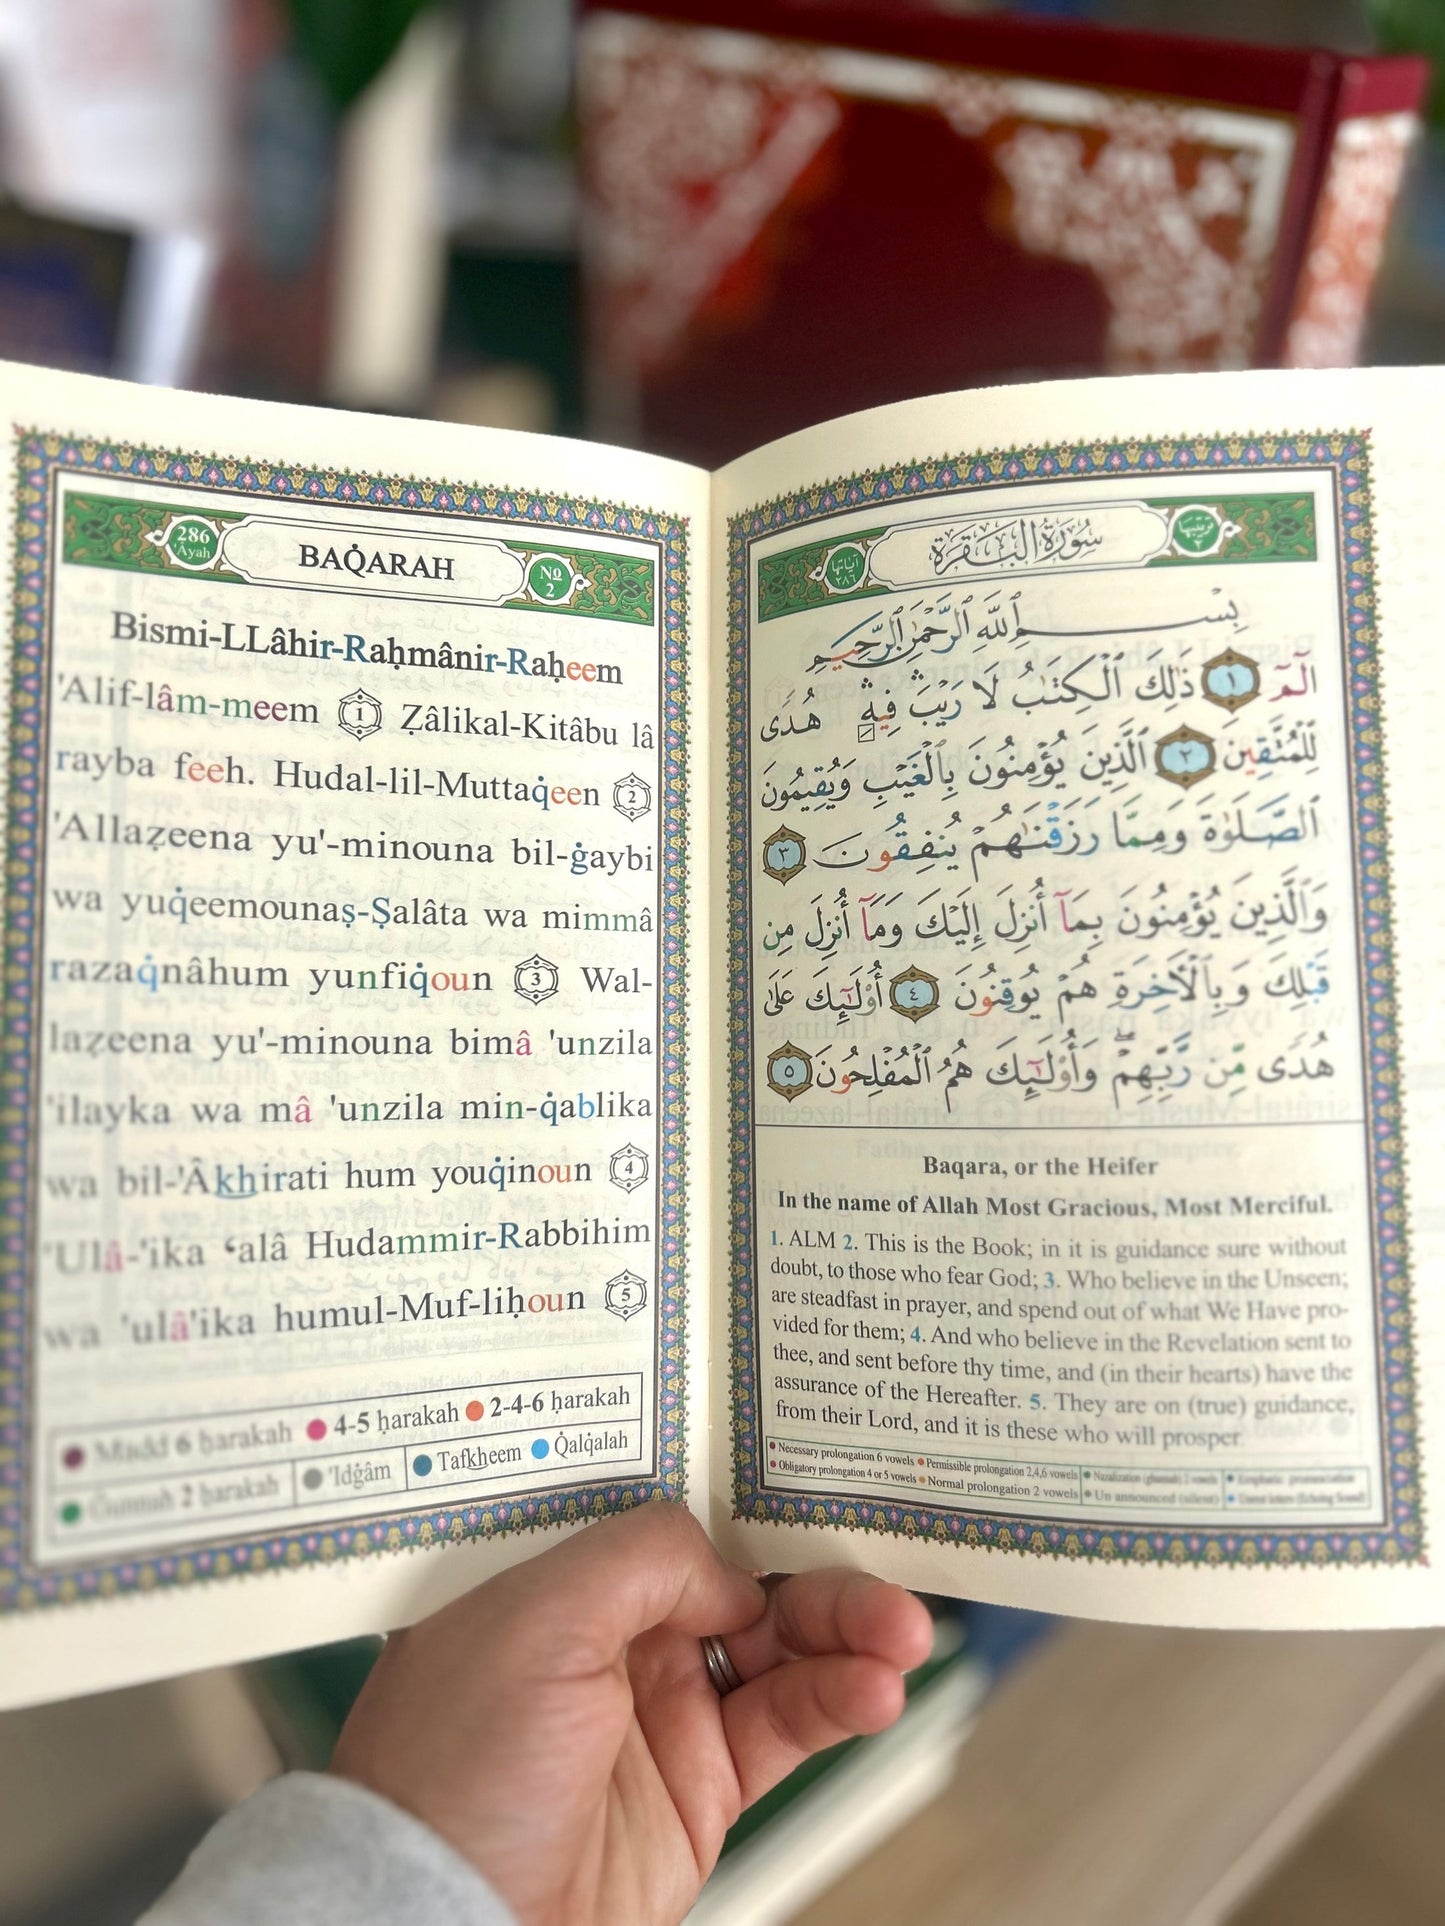 286
'Ayah
BAQ̇ARAH
No
2
Bismi-LLâhir-Raḥmânir-Raḥeem
'Alif-lâm-meem 1 Ẓâlikal-Kitâbu lâ
rayba feeh. Hudal-lil-Muttaq̇een 2
'Allaẓeena yu'-minouna bil-ġaybi
wa yuq̇eemounaṣ-Ṣalâta wa mimmâ
razaq̇nâhum yunfiq̇oun 3 Wal-
laẓeena yu'-minouna bimâ 'unzila
'ilayka wa mâ 'unzila min-q̇ablika
wa bil-'Âkhirati hum youq̇inoun 4
'Ulâ-'ika ʻalâ Hudammir-Rabbihim
wa 'ulâ'ika humul-Muf-liḥoun 5
Madd 6 ḥarakah 4-5 ḥarakah 2-4-6 ḥarakah
Ġunnah 2 ḥarakah 'Idġâm Tafkheem Q̇alq̇alah
ترتيبها
٢
سُورَةُ الْبَقَرَةِ
آياتها
٢٨٦
بِسْمِ ٱللَّهِ ٱلرَّحْمَٰنِ ٱلرَّحِيمِ
الٓمٓ ١ ذَٰلِكَ ٱلْكِتَٰبُ لَا رَيْبَ ۛ فِيهِ ۛ هُدًى
لِّلْمُتَّقِينَ ٢ ٱلَّذِينَ يُؤْمِنُونَ بِٱلْغَيْبِ وَيُقِيمُونَ
ٱلصَّلَوٰةَ وَمِمَّا رَزَقْنَٰهُمْ يُنفِقُونَ ٣
وَٱلَّذِينَ يُؤْمِنُونَ بِمَآ أُنزِلَ إِلَيْكَ وَمَآ أُنزِلَ مِن
قَبْلِكَ وَبِٱلْءَاخِرَةِ هُمْ يُوقِنُونَ ٤ أُو۟لَٰٓئِكَ عَلَىٰ
هُدًى مِّن رَّبِّهِمْ ۖ وَأُو۟لَٰٓئِكَ هُمُ ٱلْمُفْلِحُونَ ٥
Baqara, or the Heifer
In the name of Allah Most Gracious, Most Merciful.
1. ALM 2. This is the Book; in it is guidance sure without
doubt, to those who fear God; 3. Who believe in the Unseen;
are steadfast in prayer, and spend out of what We Have pro-
vided for them; 4. And who believe in the Revelation sent to
thee, and sent before thy time, and (in their hearts) have the
assurance of the Hereafter. 5. They are on (true) guidance,
from their Lord, and it is these who will prosper
Necessary prolongation 6 vowels Permissible prolongation 2,4,6 vowels Nazalization (ghunnah) 2 vowels Emphatic pronunciation
Obligatory prolongation 4 or 5 vowels Normal prolongation 2 vowels Un announced (silent)